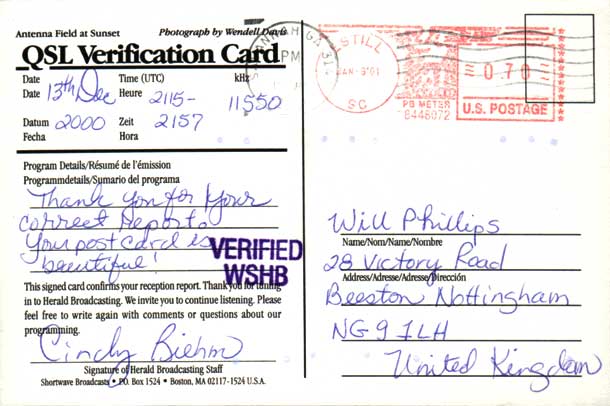 Antenna Field at Sunset Photograph by Wendell Davis
QSL Verification Card
Date Time (UTC) kHz
Date 13th Dec Heure 2115- 11550
Datum 2000 Zeit 2157
Fecha Hora
Program Details/Résumé de l'émission
Programmdetails/Sumario del programa
Thank you for your
correct report.
Your postcard is
beautiful!
VERIFIED
WSHB
This signed card confirms your reception report. Thank you for tuning
in to Herald Broadcasting. We invite you to continue listening. Please
feel free to write again with comments or questions about our
programming.
Cindy Biehm
Signature of Herald Broadcasting Staff
Shortwave Broadcasts • P.O. Box 1524 • Boston, MA 02117-1524 U.S.A.
GA
PM
ESTILL
JAN-9'01
SC
0.70
PB METER
8446072
U.S. POSTAGE
Will Phillips
Name/Nom/Name/Nombre
28 Victory Road
Address/Adresse/Adresse/Dirección
Beeston Nottingham
NG9 1LH
United Kingdom